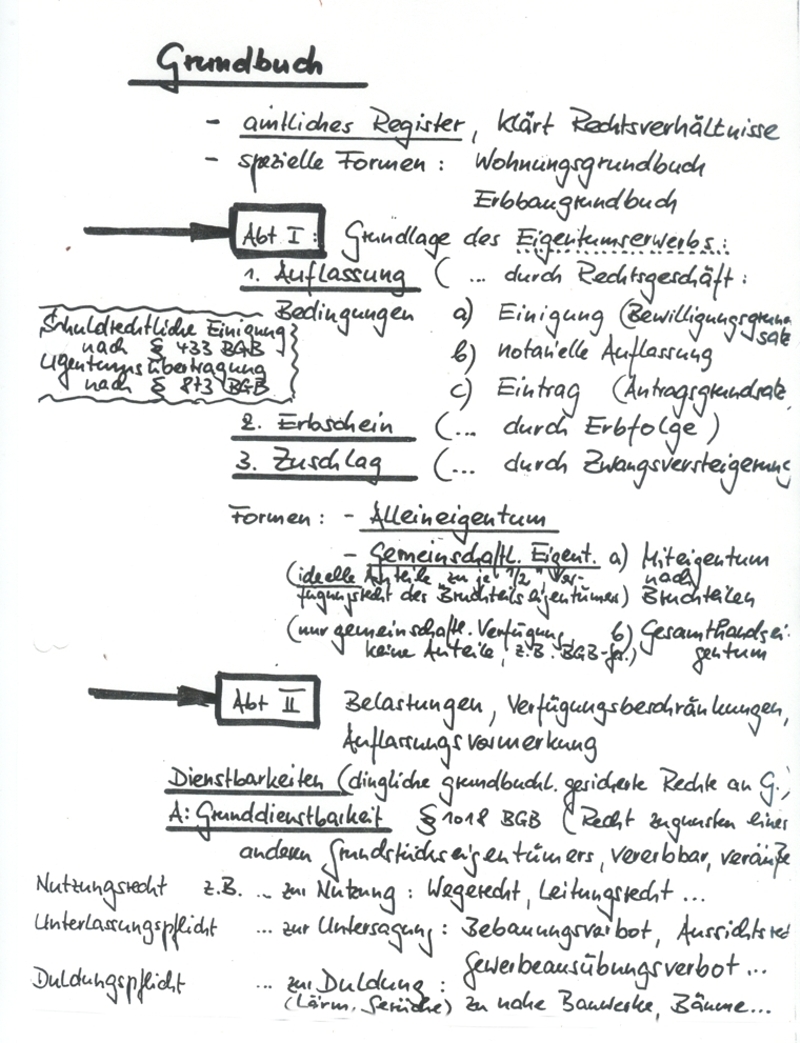 Grundbuch
- amtliches Register, klärt Rechtsverhältnisse
- spezielle Formen: Wohnungsgrundbuch
Erbbaugrundbuch
Abt I: Grundlage des Eigentumserwerbs:
1. Auflassung (... durch Rechtsgeschäft:
Bedingungen a) Einigung (Bewilligungsgrund
satz
Schuldrechtliche Einigung
nach § 433 BGB
Eigentumsübertragung
nach § 873 BGB
b) notarielle Auflassung
c) Eintrag (Antragsgrundsatz
2. Erbschein (... durch Erbfolge)
3. Zuschlag (... durch Zwangsversteigerung
Formen: - Alleineigentum
- Gemeinschaftl. Eigent. a) Miteigentum
nach
Bruchteilen
(ideelle Anteile zu je 1/2 " Ver-
fügungsrecht des Bruchteilseigentümers)
(nur gemeinschaftl. Verfügung, b) Gesamthandsei-
keine Anteile, z.B. BGB-Ges.) gentum
Abt II Belastungen, Verfügungsbeschränkungen,
Auflassungsvormerkung
Dienstbarkeiten (dingliche grundbuchl. gesicherte Rechte an G.)
A: Grunddienstbarkeit § 1018 BGB (Recht zugunsten eines
anderen Grundstückseigentümers, vererbbar, veräuße
Nutzungsrecht z.B. ... zur Nutzung: Wegerecht, Leitungsrecht ...
Unterlassungspflicht ... zur Untersagung: Bebauungsverbot, Aussichtsre
Gewerbeausübungsverbot ...
Duldungspflicht ... zur Duldung:
(Lärm, Gerüche) zu nahe Bauwerke, Bäume...